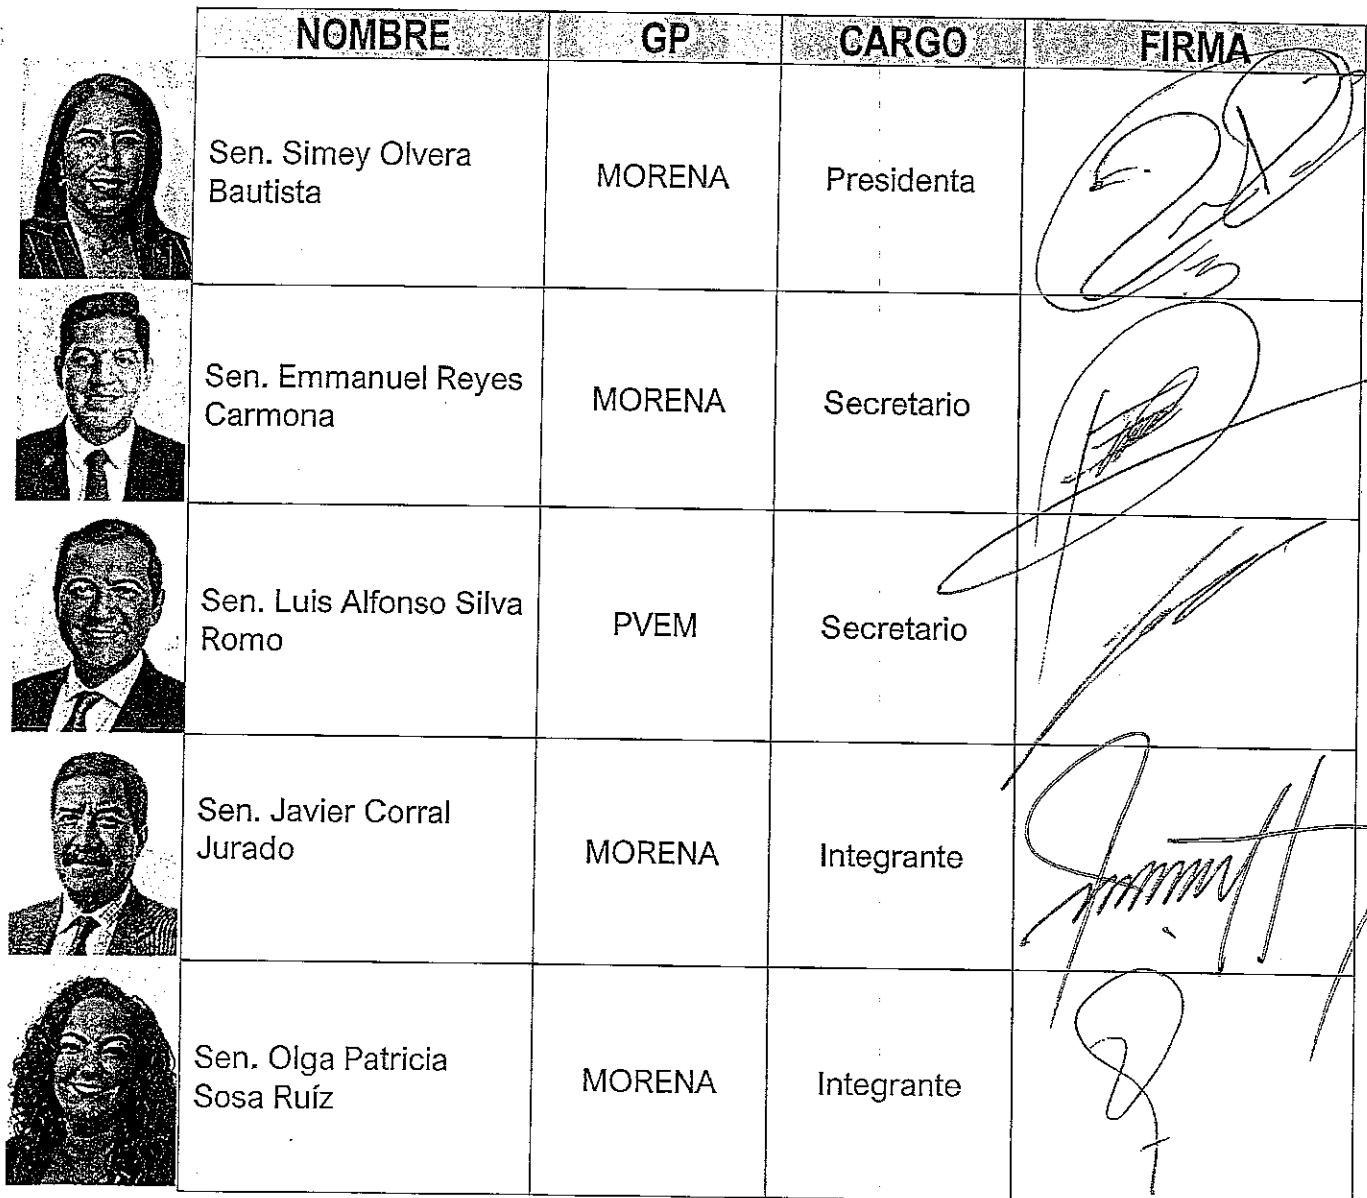 NOMBRE GP CARGO FIRMA
Sen. Simey Olvera
Bautista
MORENA
Presidenta
Sen. Emmanuel Reyes
Carmona
MORENA
Secretario
Sen. Luis Alfonso Silva
Romo
PVEM
Secretario
Sen. Javier Corral
Jurado
MORENA
Integrante
Sen. Olga Patricia
Sosa Ruíz
MORENA
Integrante